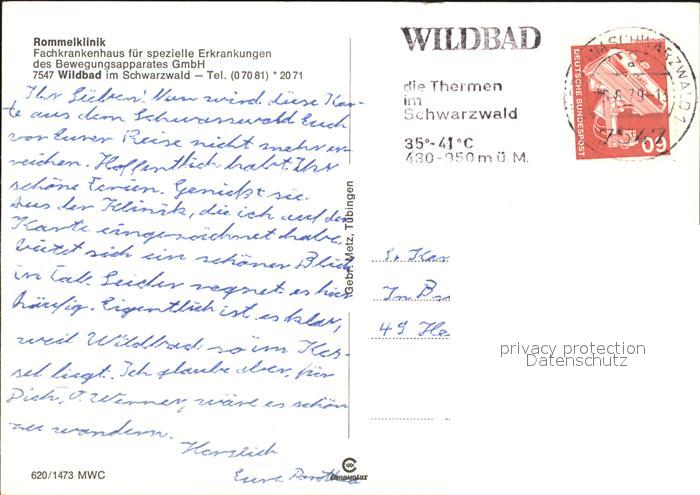 Rommelklinik
Fachkrankenhaus für spezielle Erkrankungen
des Bewegungsapparates GmbH
7547 Wildbad im Schwarzwald – Tel. (07081) *2071
Ihr Lieben! Nun wird diese Kar-
te aus dem Schwarzwald Euch
vor Eurer Reise nicht mehr er-
reichen. Hoffentlich habt Ihr
schöne Ferien. Genießt sie.
Aus der Klinik, die ich auf der
Karte eingezeichnet habe,
bietet sich ein schöner Blick
in Tal. Leider regnet es hier
häufig. Eigentlich ist es klar,
weil Wildbad so im Kes-
sel liegt. Ich glaube aber, für
Dich, O. Werner, wäre es schön
zu wandern.
Herzlich
Eure Dorothea
620/1473 MWC
Gebr. Metz, Tübingen
Chromolux
WILDBAD
die Thermen
im
Schwarzwald
35°-41°C
430-950 m ü. M.
IM SCHWARZWALD 1
7547
DEUTSCHE BUNDESPOST
60
In
49 He
privacy protection
Datenschutz